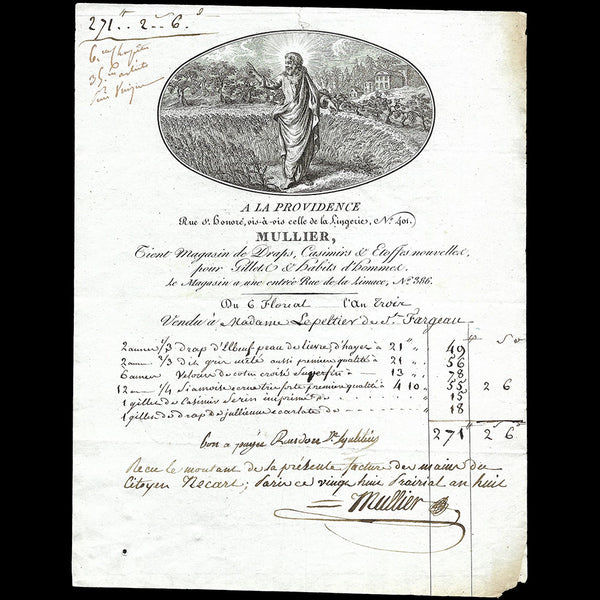 271 " 2 " 6 s
A LA PROVIDENCE
Rue St. honoré, vis-à-vis celle de la Lingerie, No. 401.
MULLIER,
Tient Magasin de Draps, Casimirs & Etoffes nouvelles,
pour Gillets & habits d'hommes,
le Magasin a une entrée Rue de la Limace, No. 386.
Du 6 Floréal l'An Troix
Vendu à Madame Lepeltier de St. Fargeau
2 aunes 1/3 drap d'Elbeuf peau de lievre, d'hayer à 21 " 49
2 aunes 2/3 dit gris mêlé aussi premiere qualité à 21 " 56
6 aunes Velours de coton croisé Superfin à 13 " 78
12 aunes 1/4 Siamoise ecrue très forte premiere qualité à 4 10 " 55 2 6
1 gillet de Casimir Serin imprimé de " 15
1 gillet de drap de jullienne ecarlate de " 18
271 " 2 6
bon a payer
Recu le montant de la présente facture des mains du
Citoyen Necart; Paris ce vingt huit Prairial an huit
Mullier